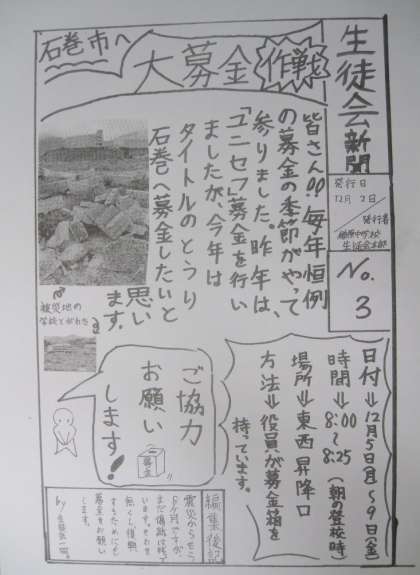 生徒会新聞
発行日
12月2日
発行者
中学校
生徒会本部
No.3
石巻市へ
大募金作戦
皆さん!!毎年恒例
の募金の季節がやって
参りました。昨年は、
「ユニセフ」募金を行い
ましたが、今年は
タイトルのとうり
石巻へ募金したいと
思い
ます。
被災地の
学校とがれき
日付⇒12月5日(月)~9日(金)
時間⇒8:00
~
8:25
(朝の登校時)
場所⇒東西昇降口
方法⇒役員が募金箱を
持っています。
ご協力
お願い
します!
募金
編集後記
震災からもう
9ヶ月ですが、
まだ傷跡は残って
います。それを
無くし、復興
するためにも
募金をお願い
します。
by